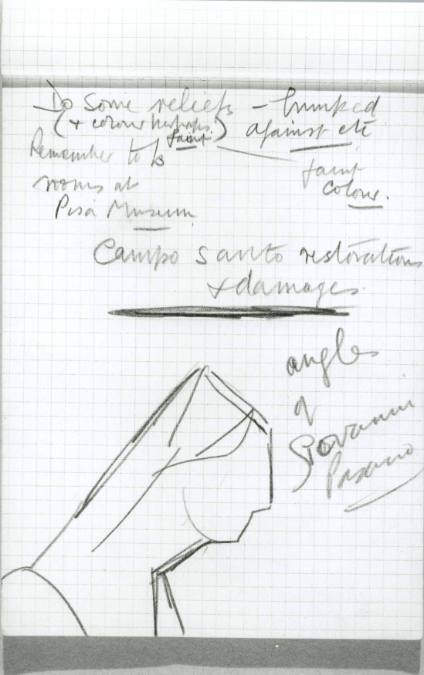 Do some reliefs - bumped
(+ colour perhaps faint) against etc
Remember to
faint
rooms at
colour.
Pisa Museum
Campo Santo restorations
+ damages
angles
of
Giovanni
Pisano